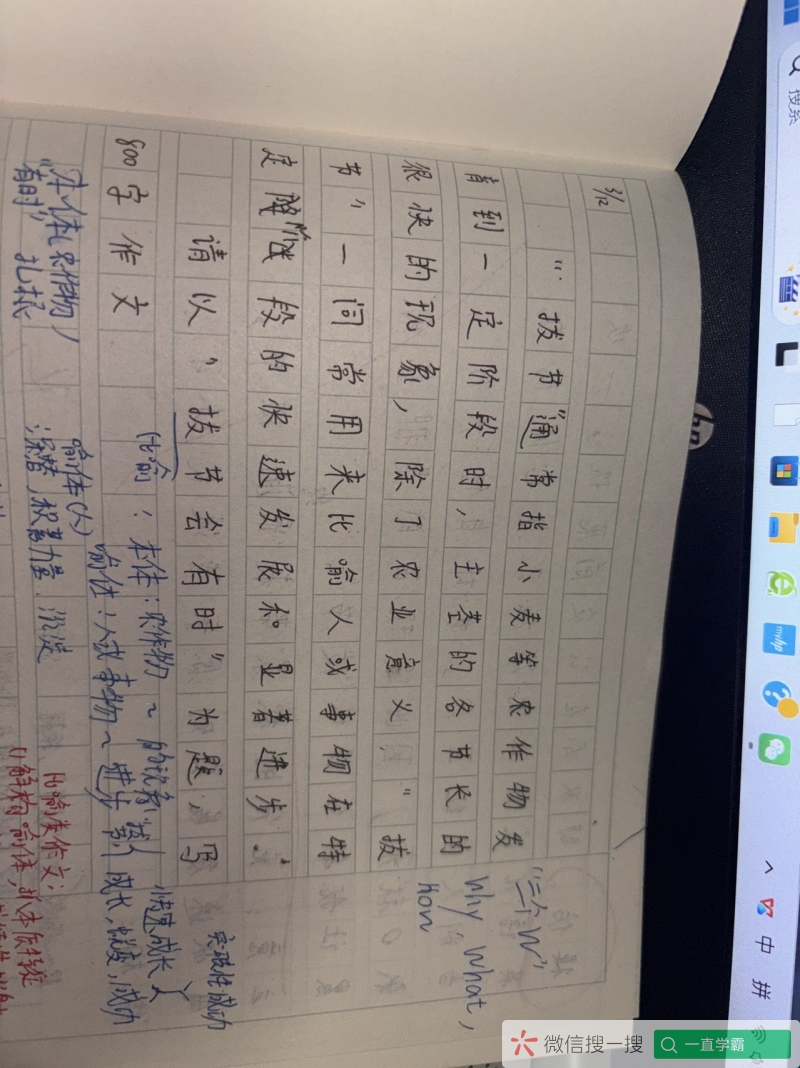 3/12
“拔节”通常指小麦等农作物发
育到一定阶段时,主茎的各节长的
很快的现象,除了农业意义“拔
节”一词常用来比喻人或事物在特
定阶段的快速发展和显著进步.
请以“拔节会有时”为题,写
800字作文
“三个W”
why, what,
how
突破性成功
快速成长
比喻:本体:农作物~的现象
喻体:人或事物~进步 成长,蜕变,成功
本体(农作物)
“有时” 扎根
喻体(人)
:深耕,积蓄力量.沉淀
比喻类作文:
搜索
hp
mhp
中
拼
微信搜一搜
一直学霸